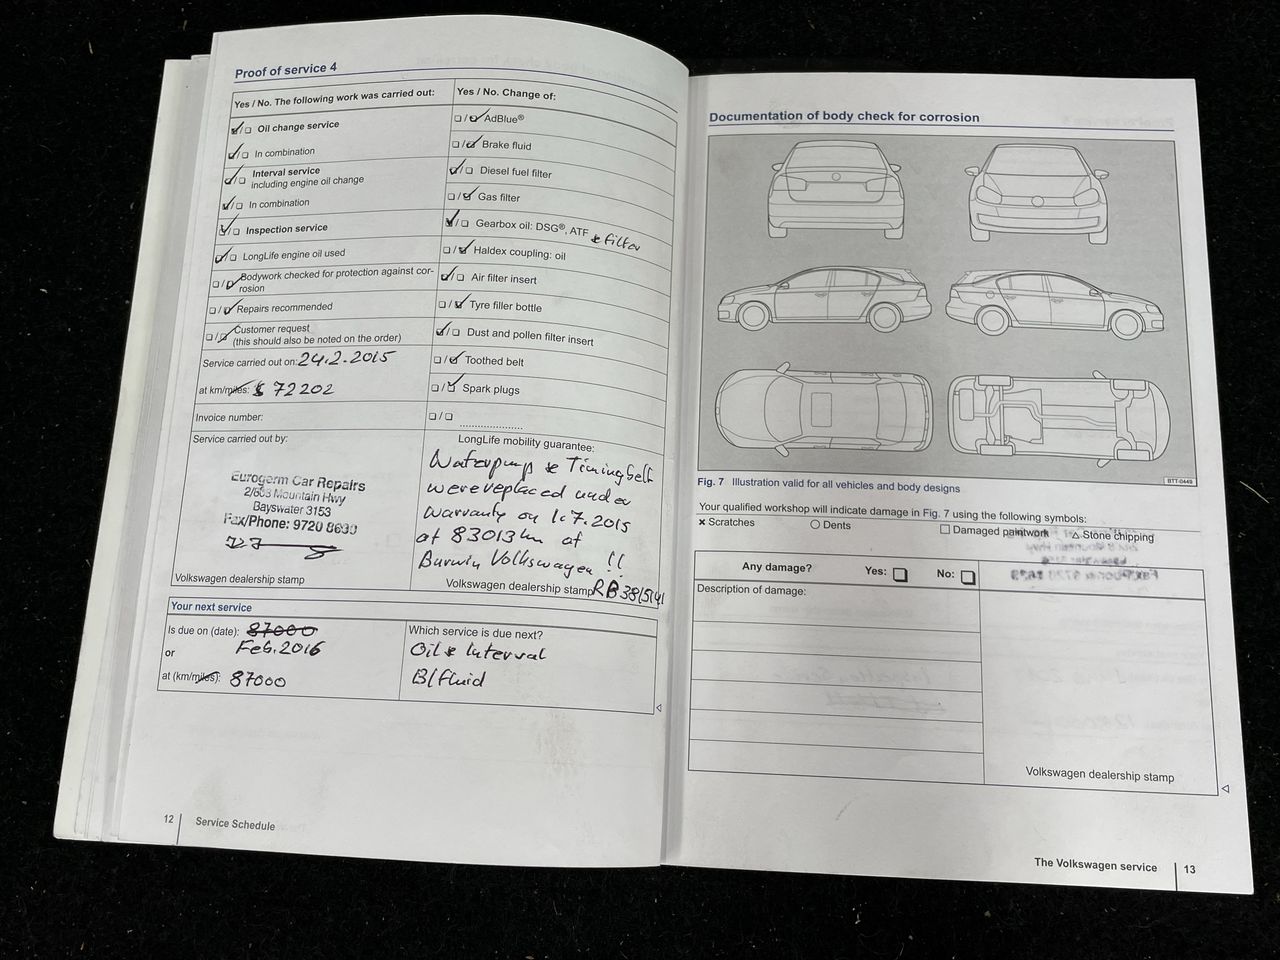 Proof of service 4
Yes / No. The following work was carried out:
☑/☐ Oil change service
☑/☐ In combination
☑/☐ Interval service
including engine oil change
☑/☐ In combination
☑/☐ Inspection service
☑/☐ LongLife engine oil used
☐/☑ Bodywork checked for protection against cor-
rosion
☐/☑ Repairs recommended
☐/☑ Customer request
(this should also be noted on the order)
Service carried out on: 24.2.2015
at km/miles: 72202
Invoice number:
Service carried out by:
Eurogerm Car Repairs
2/603 Mountain Hwy
Bayswater 3153
Fax/Phone: 9720 8630
Volkswagen dealership stamp
Yes / No. Change of:
☐/☑ AdBlue®
☐/☑ Brake fluid
☑/☐ Diesel fuel filter
☐/☑ Gas filter
☑/☐ Gearbox oil: DSG®, ATF & filter
☐/☑ Haldex coupling: oil
☑/☐ Air filter insert
☐/☑ Tyre filler bottle
☑/☐ Dust and pollen filter insert
☐/☑ Toothed belt
☐/☑ Spark plugs
☐ / ☐ ....................
LongLife mobility guarantee:
Waterpump & Timing belt
were replaced under
warranty on 1.7.2015
at 83013km at
Volkswagen !!
Volkswagen dealership stamp
Your next service
Is due on (date): 87000
Feb. 2016
or
at (km/miles): 87000
Which service is due next?
Oil & Interval
B/fluid
12
Service Schedule
Documentation of body check for corrosion
BTT-0449
Fig. 7 Illustration valid for all vehicles and body designs
Your qualified workshop will indicate damage in Fig. 7 using the following symbols:
× Scratches ○ Dents ☐ Damaged paintwork △ Stone chipping
Any damage? Yes: ☐ No: ☐
Description of damage:
Volkswagen dealership stamp
The Volkswagen service
13